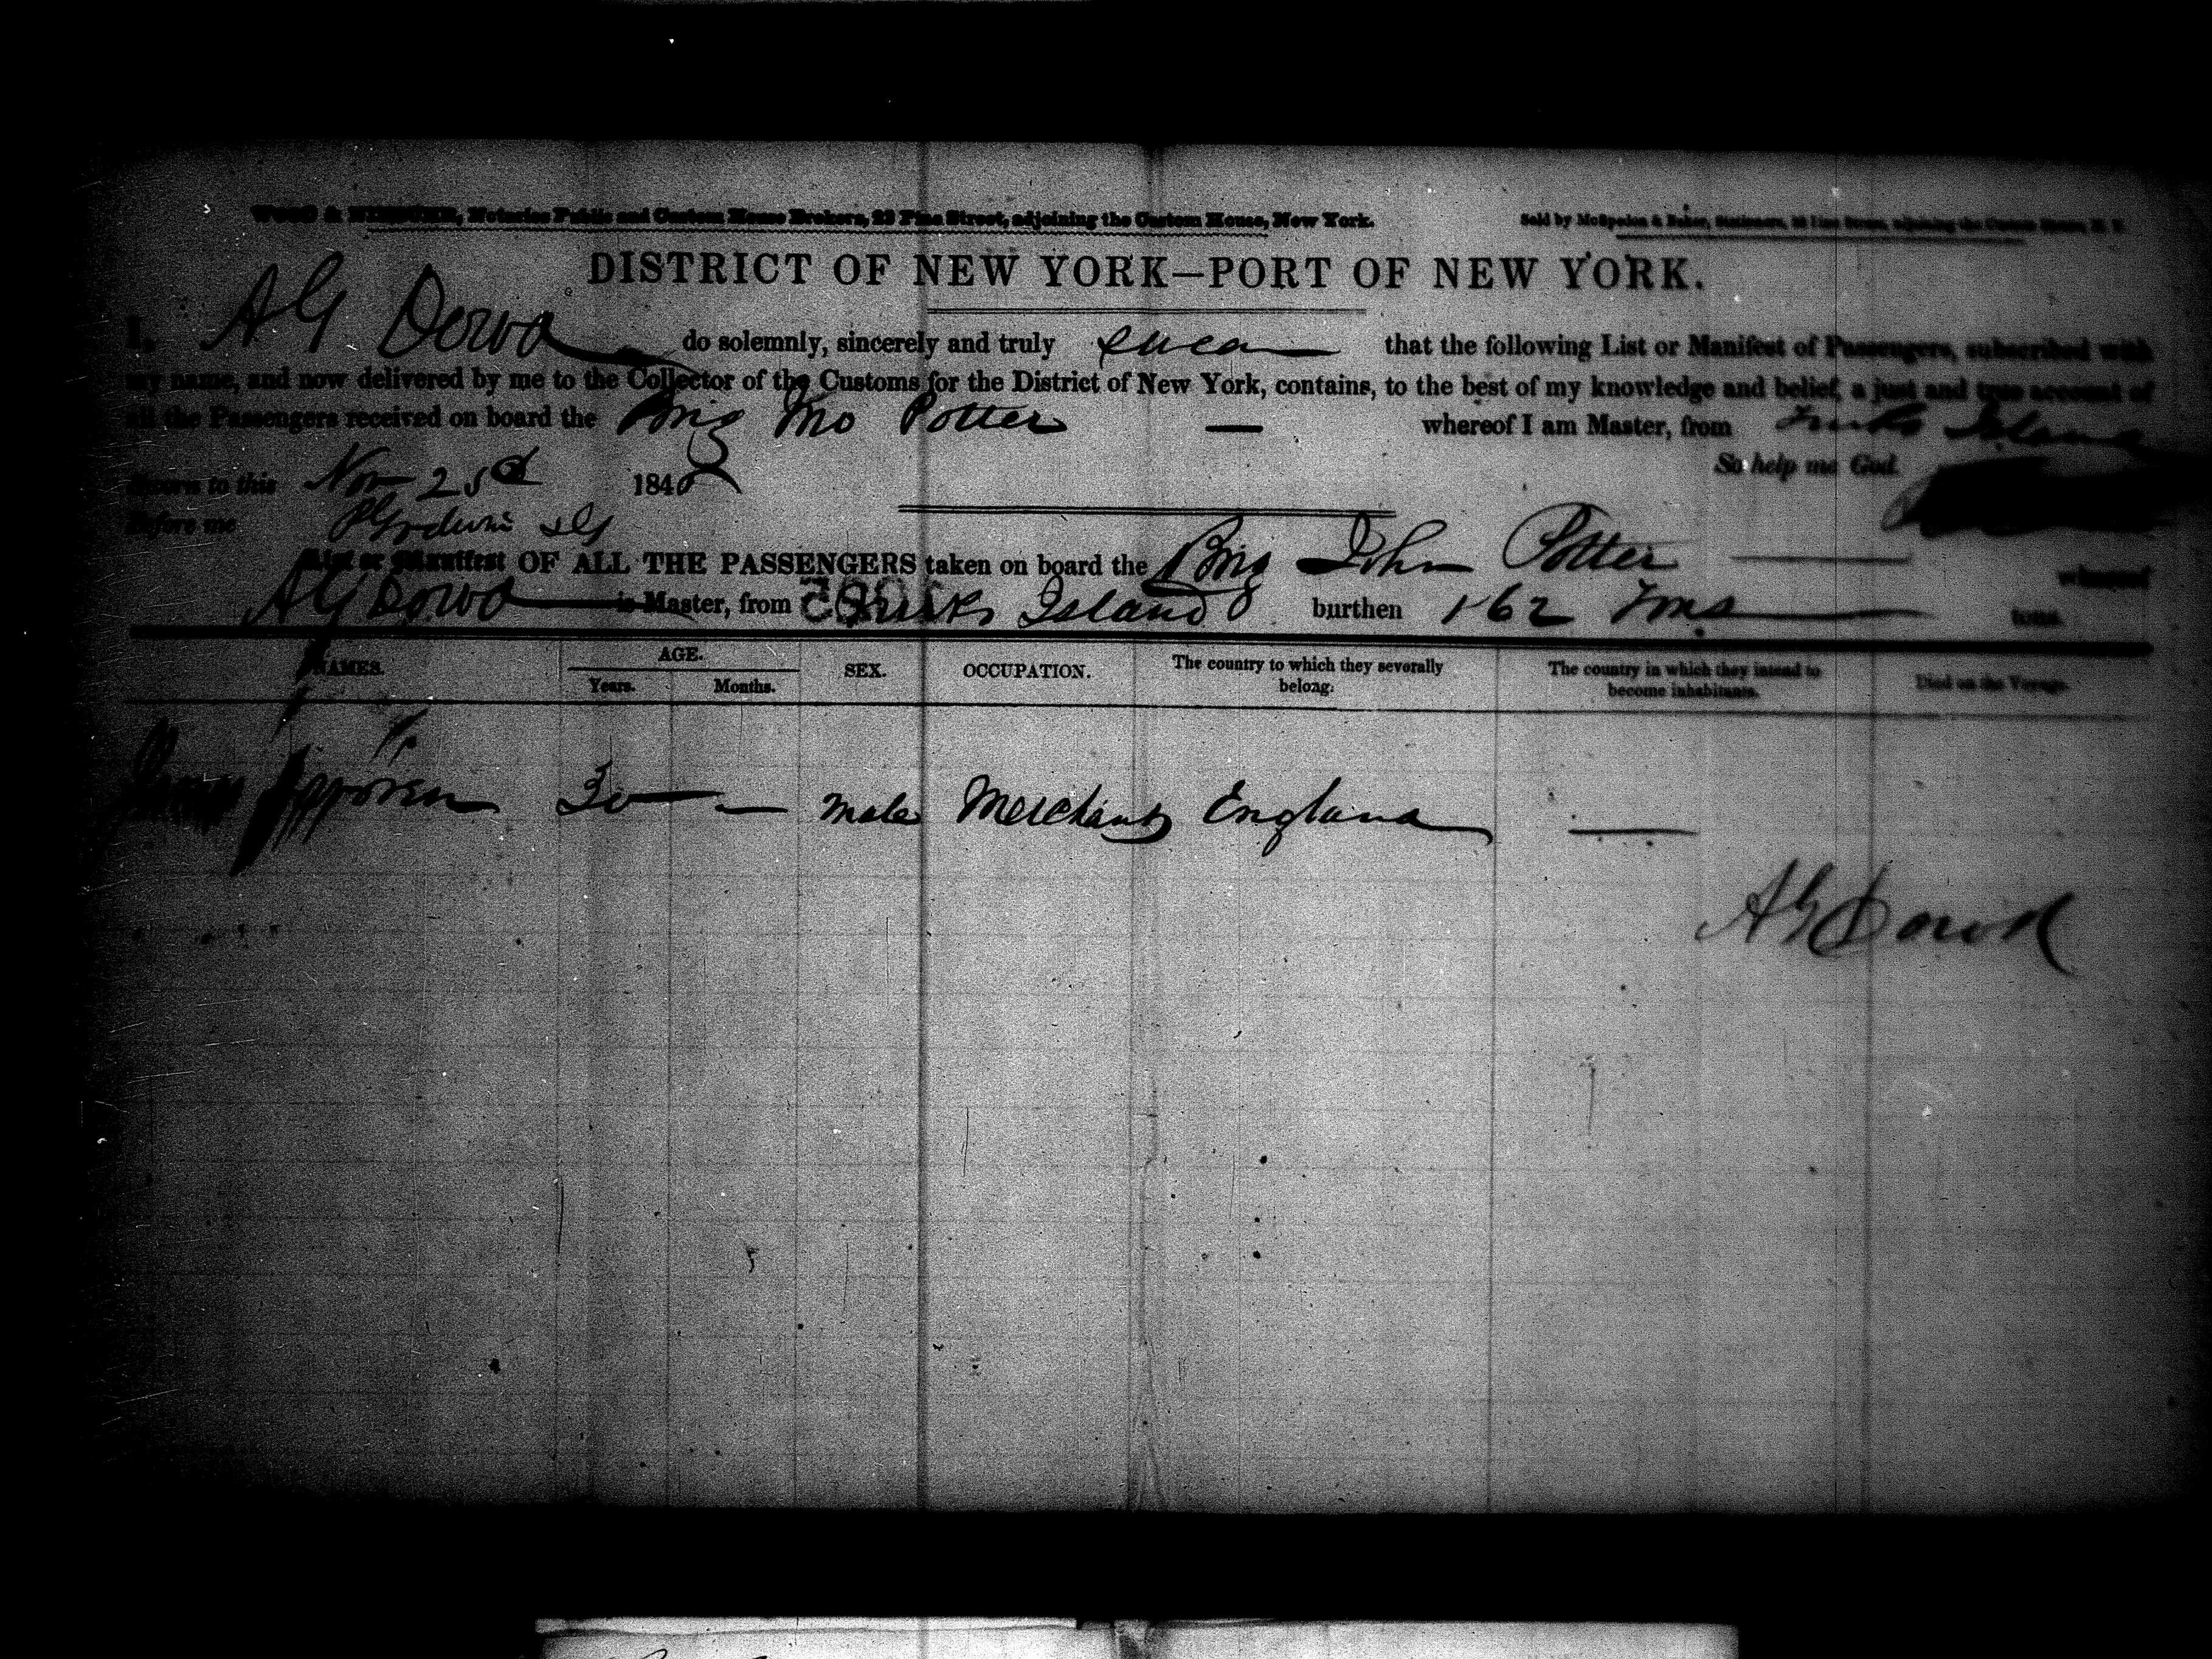 Notaries Public and Custom House Brokers, 29 Pine Street, adjoining the Custom House, New York.
Sold by McSpedon & Baker, Stationers, adjoining the Custom House, N. Y.
DISTRICT OF NEW YORK—PORT OF NEW YORK.
I, A G Dowd do solemnly, sincerely and truly swear that the following List or Manifest of Passengers, subscribed with
my name, and now delivered by me to the Collector of the Customs for the District of New York, contains, to the best of my knowledge and belief, a just and true account of
all the Passengers received on board the Brig Jno Potter — whereof I am Master, from Turks Island
So help me God.
Sworn to this Nov 184
Before me
List or Manifest OF ALL THE PASSENGERS taken on board the Brig John Potter whereof
A G Dowd is Master, from Turks Island burthen 162 Tons tons.
NAMES. AGE. SEX. OCCUPATION. The country to which they severally belong. The country in which they intend to become inhabitants. Died on the Voyage.
Years. Months.
male Merchant England —
A G Dowd